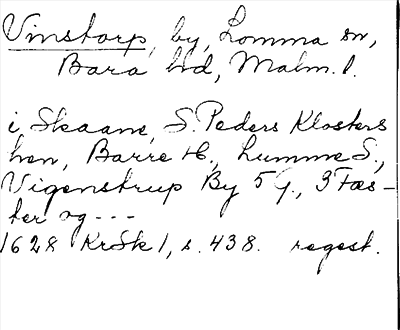 Vinstorp, by, Lomma sn,
Bara hd, Malm. l.
i Skaane, S. Peders Klosters
len, Barre H., Lumme S.,
Vigenstrup By 5 G., 3 Fæs-
ter og ---
1628 KrSk 1, s. 438. regest.